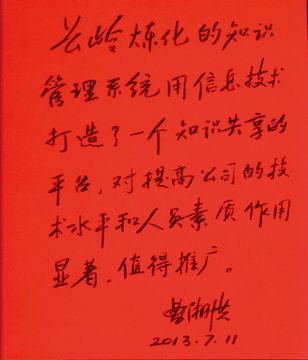 长岭炼化的知识
管理系统用信息技术
打造了一个知识共享的
平台，对提高公司的技
术水平和人员素质作用
显著，值得推广。
曹湘洪
2013.7.11